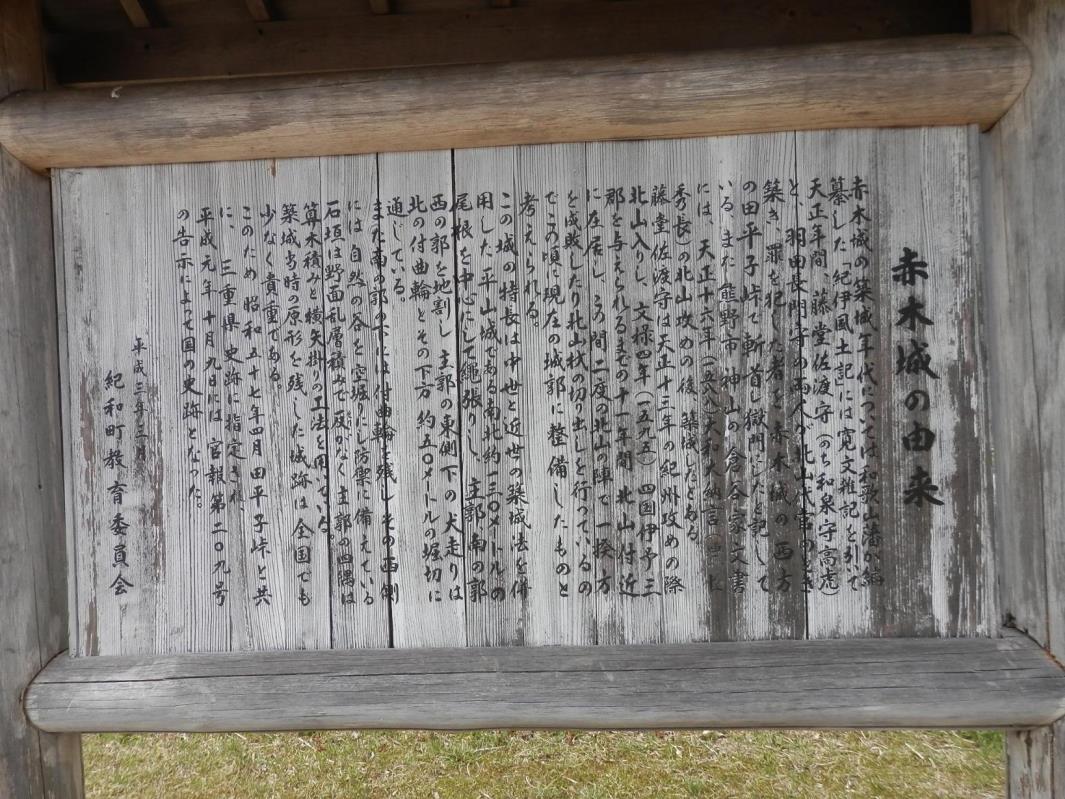 赤木城の由来
赤木城の築城年代については和歌山藩が編
纂した「紀伊風土記」には寛文雑記を引いて
天正年間、藤堂佐渡守(のち和泉守高虎)
と、羽田長門守の両人が北山代官のとき
築き、罪を犯した者を赤木城の西方
の田平子峠で斬首し獄門にしたと記して
いる。また熊野市神山の倉谷家文書
には、天正十六年(一五八八)大和大納言(
秀長)の北山攻めの後、築城したとある。
藤堂佐渡守は天正十三年の紀州攻めの際
北山入りし、文禄四年(一五九五)四国伊予三
郡を与えられるまでの十一年間、北山付近
に在居し、その間二度の北山の陣で一揆方
を成敗したり北山材の切り出しを行っているの
でこの頃に現在の城郭に整備したものと
考えられる。
この城の特長は中世と近世の築城法を併
用した平山城である南北約一三〇メートルの
尾根を中心にして縄張りし、主郭、南の郭
西の郭を地割し主郭の東側下の犬走りは
北の付曲輪とその下方約五〇メートルの堀切に
通じている。
また南の郭の下には付曲輪を残しその西側
には自然の谷を空堀りにし防禦に備えている
石垣は野面乱層積みで反がなく主郭の四隅は
算木積みと横矢掛りの工法を用いている。
築城当時の原形を残した城跡は全国でも
少なく貴重である。
このため昭和五十七年四月田平子峠と共
に、三重県史跡に指定され、
平成元年十月九日には官報第二〇九号
の告示によって国の史跡となった。
平成三年三月
紀和町教育委員会